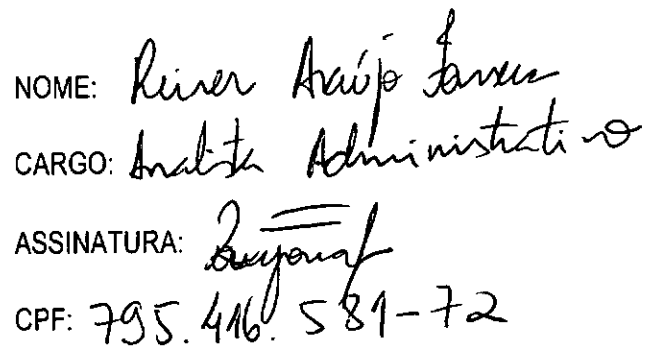 NOME: Araújo
CARGO: Analista Administrativo
ASSINATURA:
CPF: 795.416.581-72